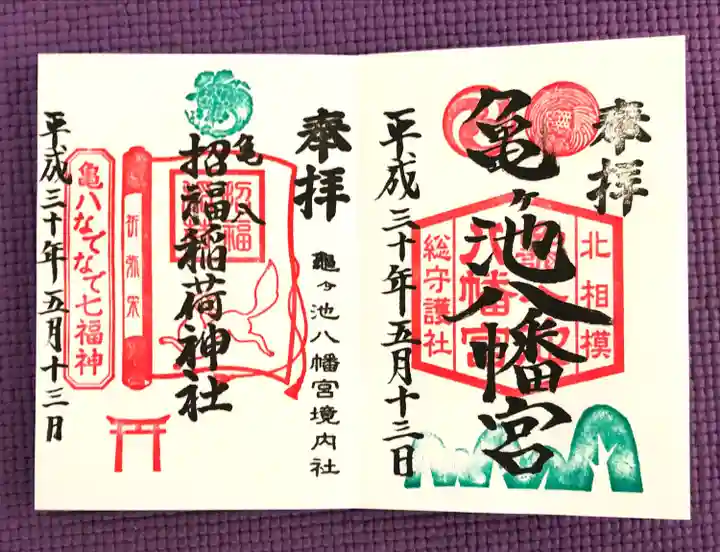 奉拝
亀ヶ池八幡宮
北相模
総守護社
平成三十年五月十三日
奉拝
亀ヶ池八幡宮境内社
亀八
招福稲荷神社
招福
亀八なでなで七福神
平成三十年五月十三日